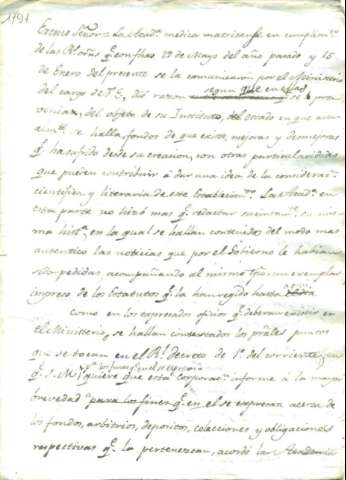 1791
Excmo Señor = La Acad.ª medica matritense en cumplim.to
de las R.s ordns q.e con fhas 22 de Mayo del año pasado y 15
de Enero del presente se la comunicaron por el Ministerio
del cargo de V.E, dió razon
segun q.e en ellas se la pre
venian, del objeto de su Instituto, estado en que actu
alm.te se halla, fondos de que existe, mejoras y desmejoras
q.e ha sufrido desde su creacion, con otras particularidades
que pueden contribuir á dar una idea de la considerac.n
cientifica y literaria de este Establecim.to La Acad.ª en
esta parte no hizo mas q.e redactar sucintam.te su mis
ma hist.ª, en la qual se hallan contenidas del modo mas
autentico las noticias que por el Gobierno le habian
sido pedidas acompañando al mismo tpo un exemplar
impreso de los Estatutos q.e la han regido hasta aquí
Como en los expresados oficios q.e deberan existir en
el Ministerio, se hallan contestados los prâles puntos
que se tocan en el R.l decreto de 1.º del corriente, en
q.e S.M. quiere que esta corporac.n informe á la mayor
brevedad para los fines q.e en el se expresan acerca de
los fondos, arbitrios, depositos, colecciones y obligaciones
respectivas q.e la pertenezcan, acordó la Academia